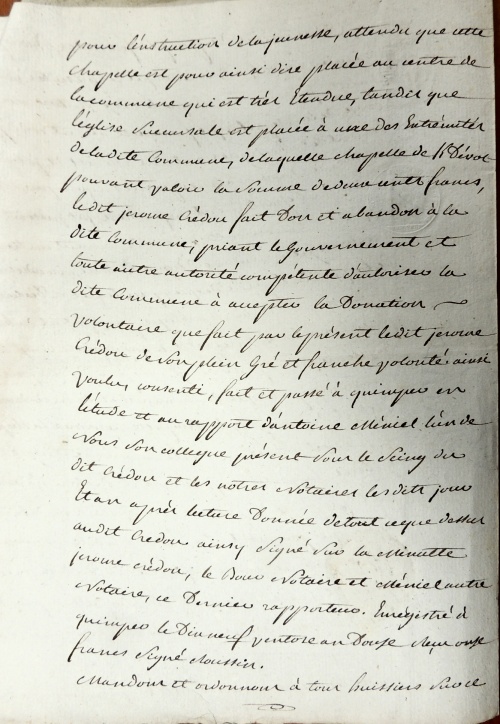 pour l'instruction de la jeunesse, attendu que cette
chapelle est pour ainsi dire placée au centre de
la commune qui est très Etendue, tandis que
l'église Succursale est placée à une des Extrémités
de la dite Commune, de laquelle chapelle de St Dévot
pouvant valoir la Somme de deux cents francs,
le dit jerome Crédou fait Don et abandon à la
dite Commune, priant le Gouvernement et
toute autre autorité compétente d'autoriser la
dite Commune à accepter la Donation
volontaire que fait par le présent le dit jerome
Crédou de Son plein Gré et franche volonté ainsi
voulu, consenti, fait et passé à quimper en
l'étude et au rapport d'antoine Méniel l'un de
Nous Son collegue présent Sous le Seing du
dit Crédou et les notres Notaires les dits jour
Et an après lecture Donnée de tout ce que dessus
audit Credou ainsy Signé Sur la Minutte
jerome crédou, le Notaire et Méniel autre
Notaire, ce Dernier rapporteur. Enregistré à
quimper le Dix neuf ventose an Douze Reçu onze
francs Signé
Mandons et ordonnons à tous huissiers Sur ce